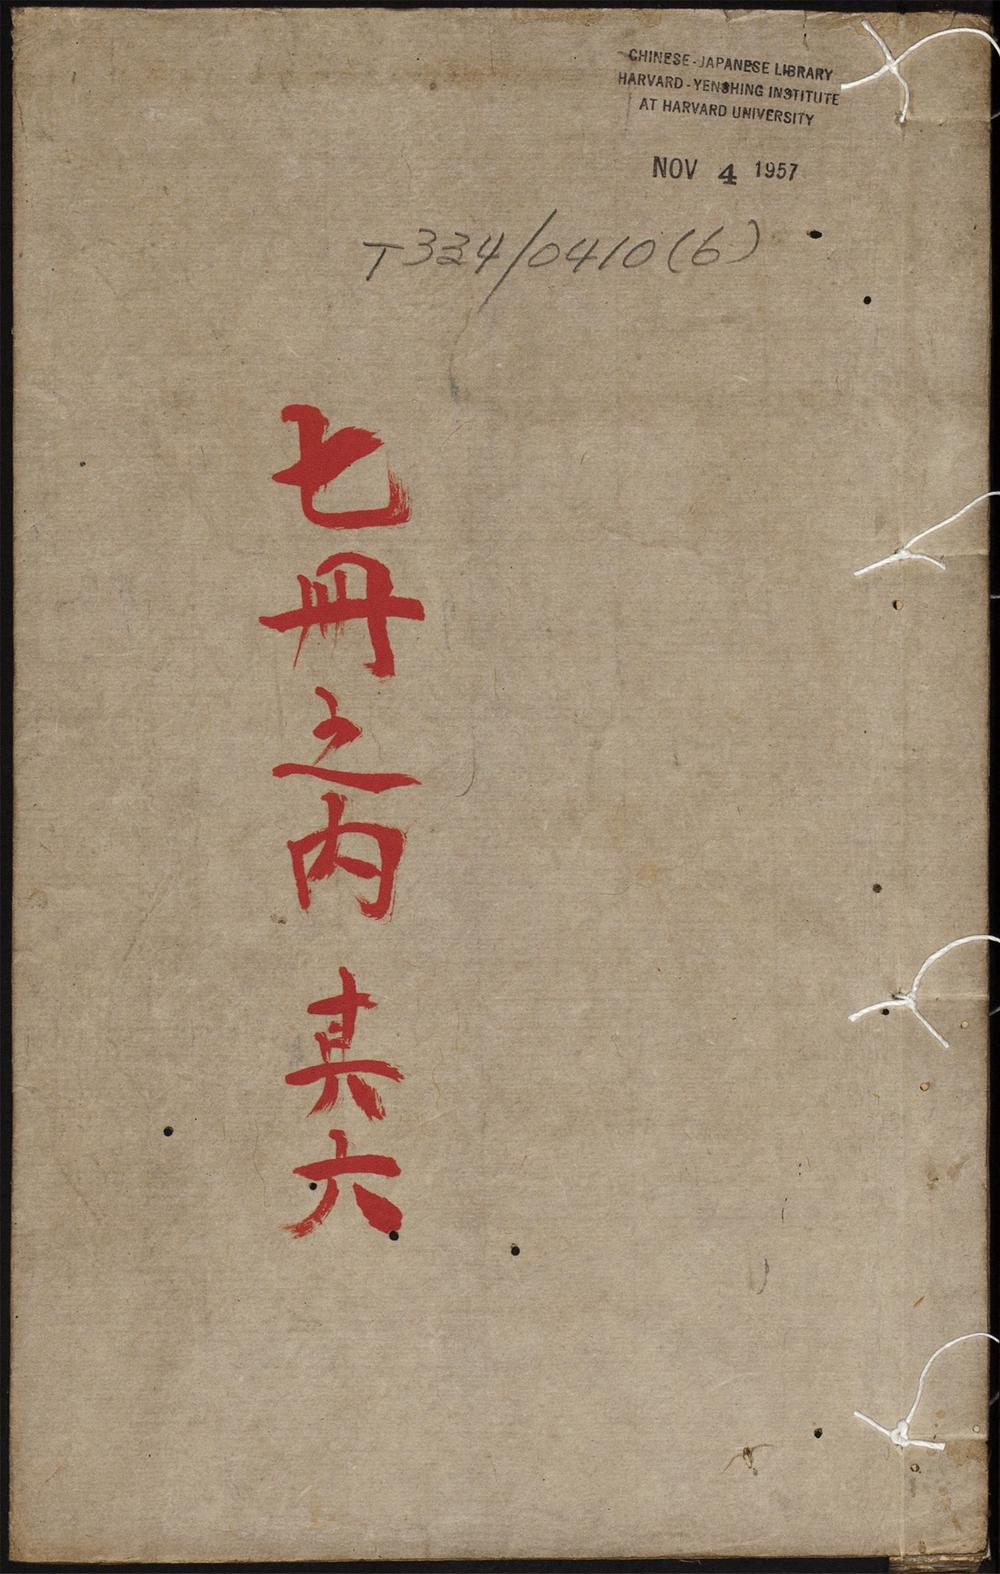 CHINESE-JAPANESE LIBRARY
HARVARD-YENSHING INSTITUTE
AT HARVARD UNIVERSITY
NOV 4 1957
T334/0410(6)
七冊之内 其六